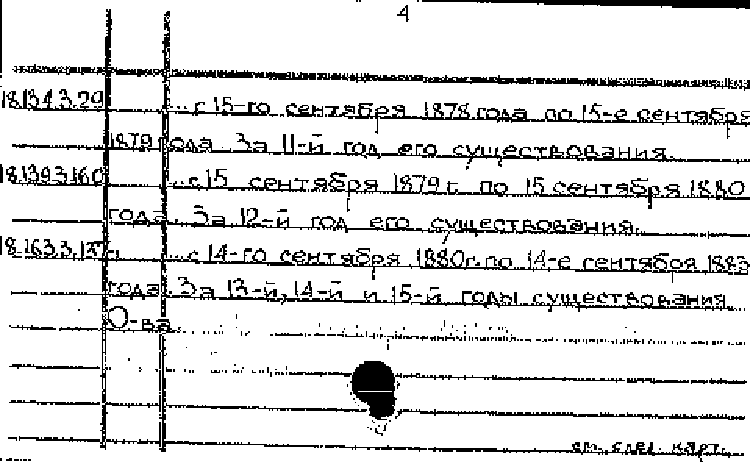 4
18.134.3.29 ... с 15-го сентября 1878 года по 15-е сентября
1879 года. За 11-й год его существования.
18.139.3.160 ... с 15 сентября 1879 г. по 15 сентября 1880
года. За 12-й год его существования.
18.163.3. ... с 14-го сентября 1880 г. по 14-е сентября 1883
года. За 13-й, 14-й и 15-й годы существования
О-ва.
см. след. карт.